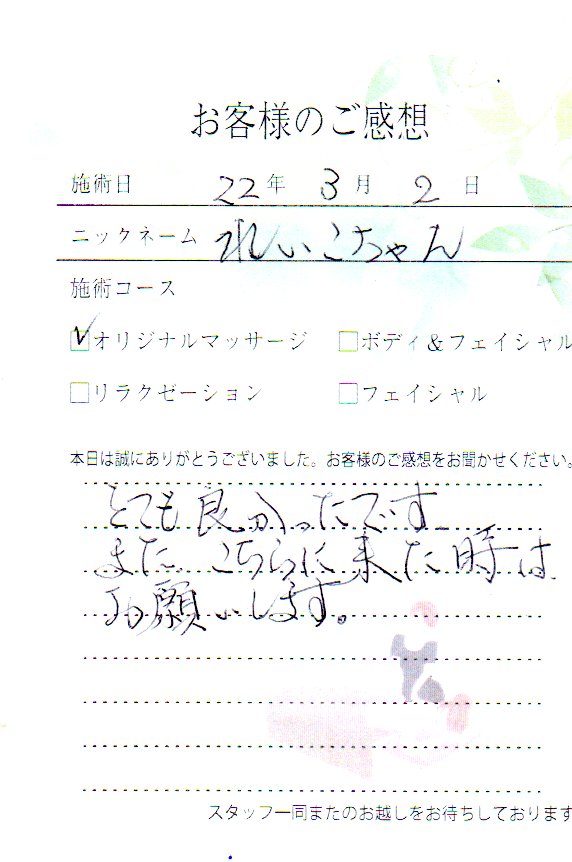 お客様のご感想
施術日 22年 3月 2日
ニックネーム れいこちゃん
施術コース
✓オリジナルマッサージ □ボディ&フェイシャル
□リラクゼーション □フェイシャル
本日は誠にありがとうございました。お客様のご感想をお聞かせください。
とても良かったです
また、こちらに来た時は
お願いします。
スタッフ一同またのお越しをお待ちしております